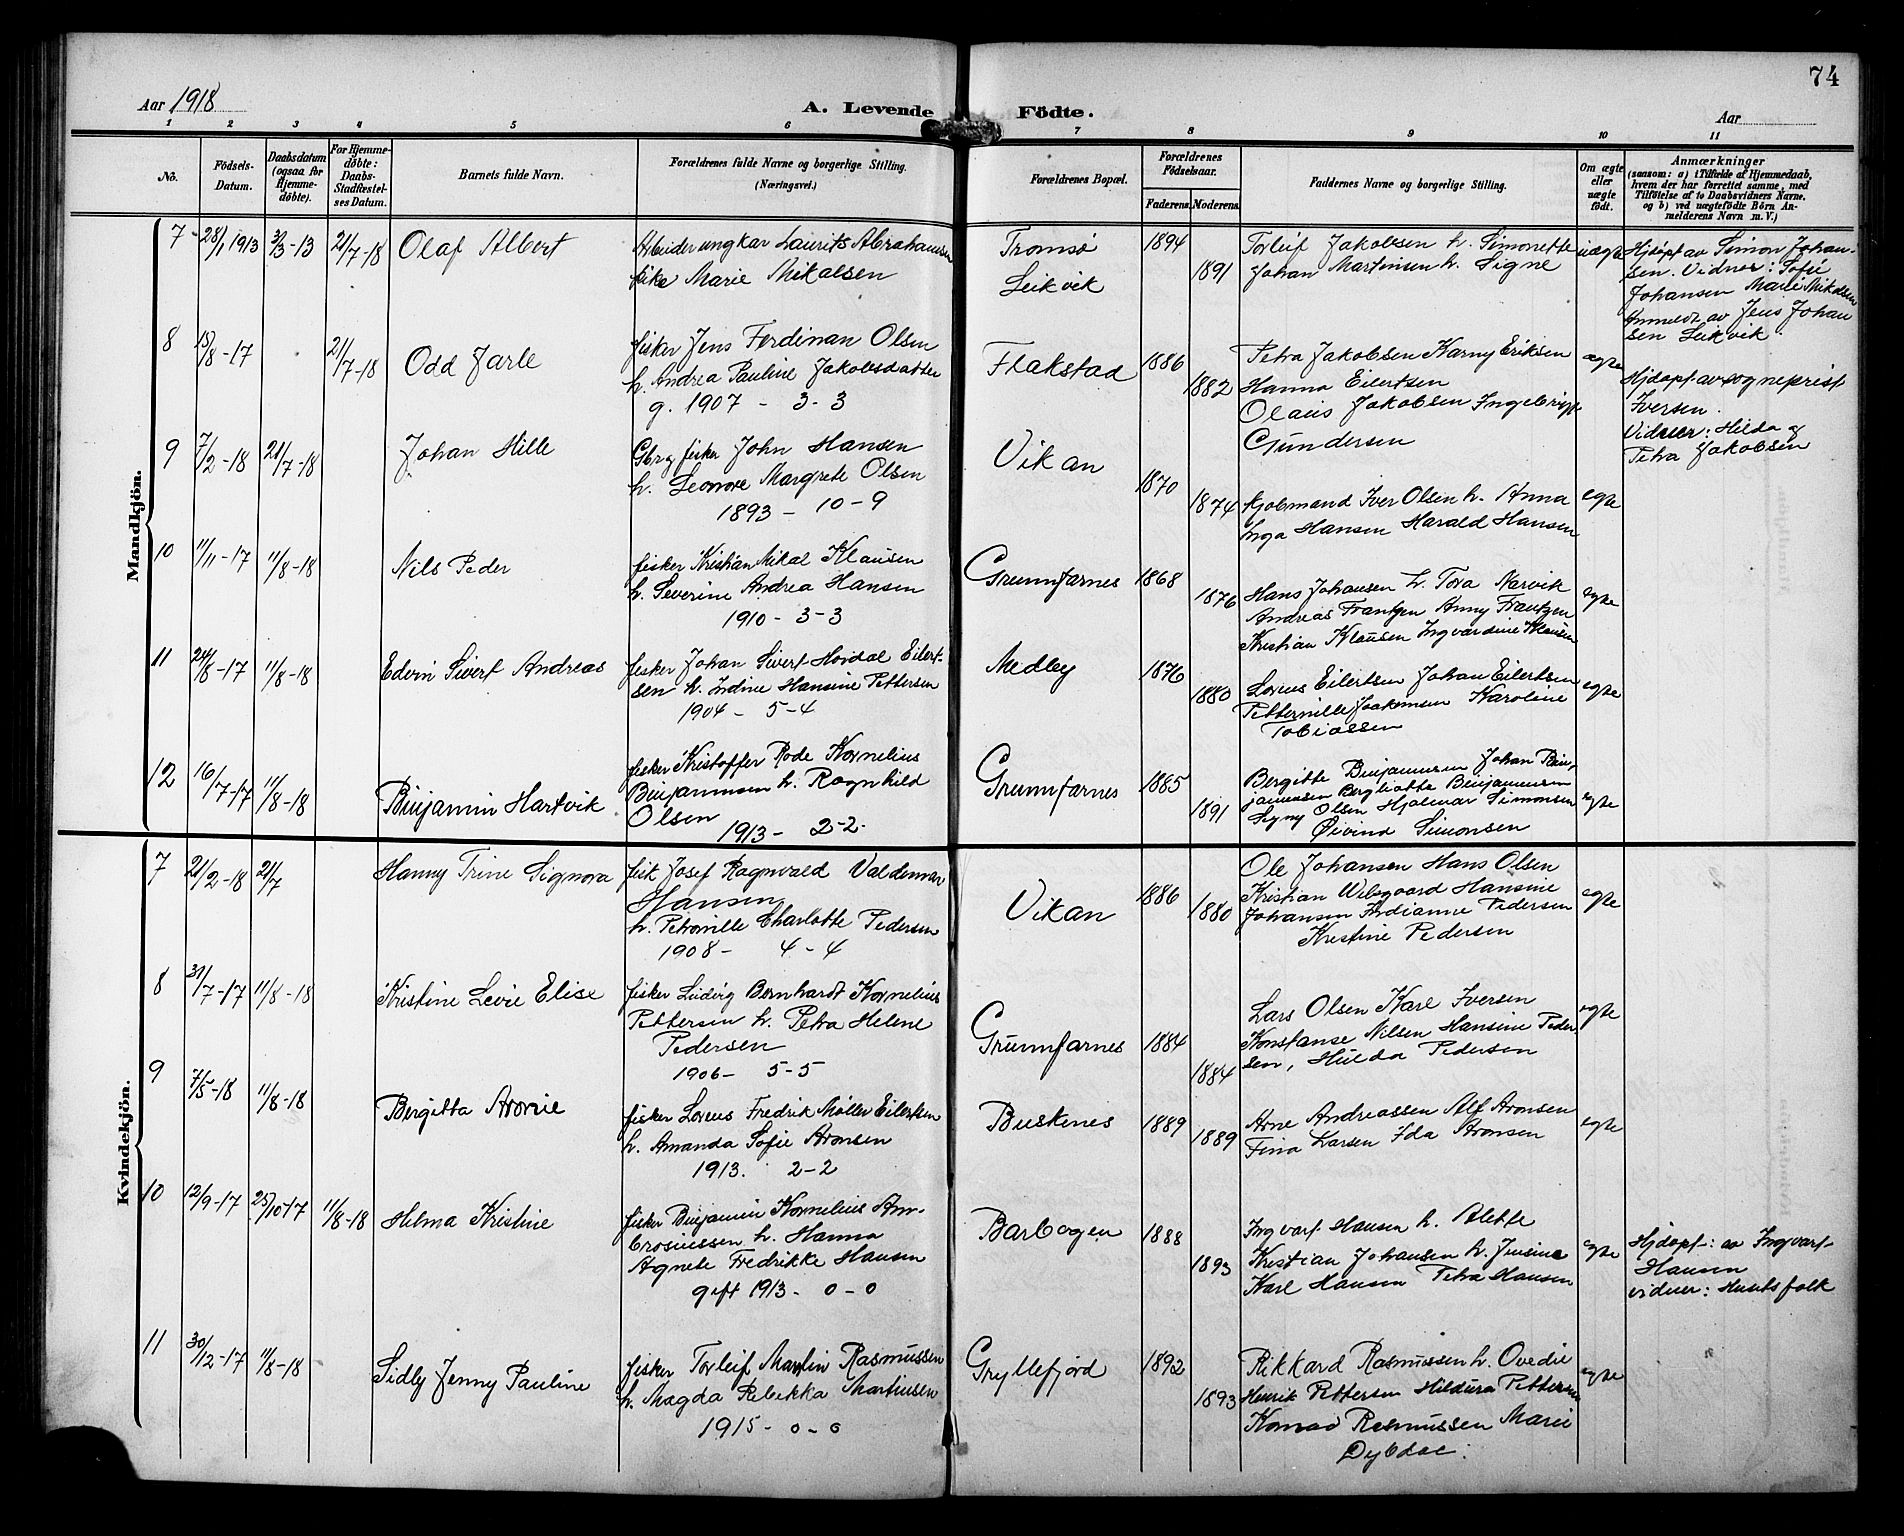 74
Aar 1918
A. Levende Fødte.
Aar
1 2 3 4 5 6 7 8 9 10 11
No.
Fødsels-Datum.
Daabsdatum (ogsaa for Hjemme-døbte).
For Hjemme-døbte: Daabs-Stadfæstel-ses Datum.
Barnets fulde Navn.
Forældrenes fulde Navne og borgerlige Stilling.
(Næringsvei.)
Forældrenes Bopæl.
Forældrenes Fødselsaar.
Faderens. Moderens.
Faddernes Navne og borgerlige Stilling.
Om ægte eller uægte født.
Anmærkninger
(saasom: a) i Tilfælde af Hjemmedaab,
hvem der har forrettet samme, med
Tilføielse af to Daabsvidners Navne.
og b) ved uægtefødte Børn An-
melderens Navn m. V.)
Mandkjön.
7 28/1 1913 3/3-13 21/7-18 Olaf Albert
Arbeider ungkar Laurits Abrahamsen
pike Marie Mikalsen
Tromsø
Leikvik
1894
1891
Torleif Jakobsen h. Simonette
Johan Martinsen h. Signe
uægte
Hjdøpt av Simon Johan-
sen. Vidner: Sofie
Johansen Marie Mikalsen
Anmeldt av Jens Johan
sen Leikvik.
8 15/8-17 21/7-18 Odd Jarle
fisker Jens Ferdinan Olsen
h. Andrea Pauline Jakobsdatter
g. 1907 - 3-3
Flakstad
1886
1882
Petra Jakobsen Karny Eriksen
Hanna Eilertsen
Olaus Jakobsen
Gundersen
ægte
Hjdøpt av sogneprest
Iversen.
Vidner: Hilda og
Petra Jakobsen
9 7/2-18 21/7-18 Johan Hille
Gbrg fisker John Hansen
h. Leonore Margrete Olsen
1893 - 10-9
Vikan
1870
1874
Kjøbmand Iver Olsen h. Anna
Inga Hansen Harald Hansen
egte
10 11/11-17 11/8-18 Nils Peder
fisker Kristian Mikal Klausen
h. Severine Andrea Hansen
1910 - 3-3
Grunnfarnes
1868
1876
Hans Johansen h. Tora Narvik
Andreas Frantzen Anny Frantzen
Kristian Klausen Ingvardine Klausen
egte
11 24/8-17 11/8-18 Edvin Sivert Andreas
fisker Johan Sivert Hovdal Eilert-
sen h. Indine Hansine Pettersen
1904 - 5-4
Medby
1876
1880
Loreus Eilertsen Johan Eilertsen
Petternille Joakimsen Karoline
Tobiassen
egte
12 16/7-17 11/8-18 Binjamin Hartvik
fisker Kristoffer Rode Kornelius
Binjaminsen h. Ragnhild
Olsen
1913 - 2-2.
Grunnfarnes
1885
1891
Bergitte Binjaminsen Johan Bin-
jaminsen Bergliotte Binjaminsen
Signy Olsen Hjalmar Simonsen
Øivind Simonsen
egte
Kvindekjön.
7 21/2-18 21/7 Hanny Trine Signora
fisk Josef Ragnvald Valdemar
Hansen
h. Petornille Charlotte Pedersen
1908 - 4-4
Vikan
1886
1880
Ole Johansen Hans Olsen
Kristian Wilsgaard Hansine
Johansen Indianne Pedersen
Kristine Pedersen
egte
8 31/7-17 11/8-18 Kristine Levie Elise
fisker Ludvig Bernhardt Kornelius
Pettersen h. Petra Helene
Pedersen
1906 - 5-5
Grunnfarnes
1884
1884
Lars Olsen Karl Iversen
Konstanse Nilsen Hansine Peder
sen, Hulda Pedersen
egte
9 7/5-18 11/8-18 Bergitta Aronie
fisker Loreus Fredrik Møller Eilertsen
h. Amanda Sofie Aronsen
1913. 2-2
Buskenes
1889
1889
Arne Andreassen Alf Aronsen
Fina Larsen Ida Aronsen
egte
10 12/9-17 25/10-17 11/8-18 Hilma Kristine
fisker Binjamin Kornelius Am-
brosiussen h. Hanna
Agnete Fredrikke Hansen
gift 1913 - 0-0
Barbogen
1888
1893
Ingvart Hansen h. Alette
Kristian Johansen h. Jensine
Karl Hansen Petra Hansen
egte
Hjdøpt: av Ingvart
Hansen
vidner: Husets folk
11 30/12-17 11/8-18 Sidly Jenny Pauline
fisker Torleif Martin Rasmussen
h. Magda Rebekka Martinsen
1915 - 0-0
Gryllefjord
1892
1893
Rikkard Rasmussen h. Ovedie
Henrik Pettersen Hildura Pettersen
Konrad Rasmussen Marie
Dybdal.
egte